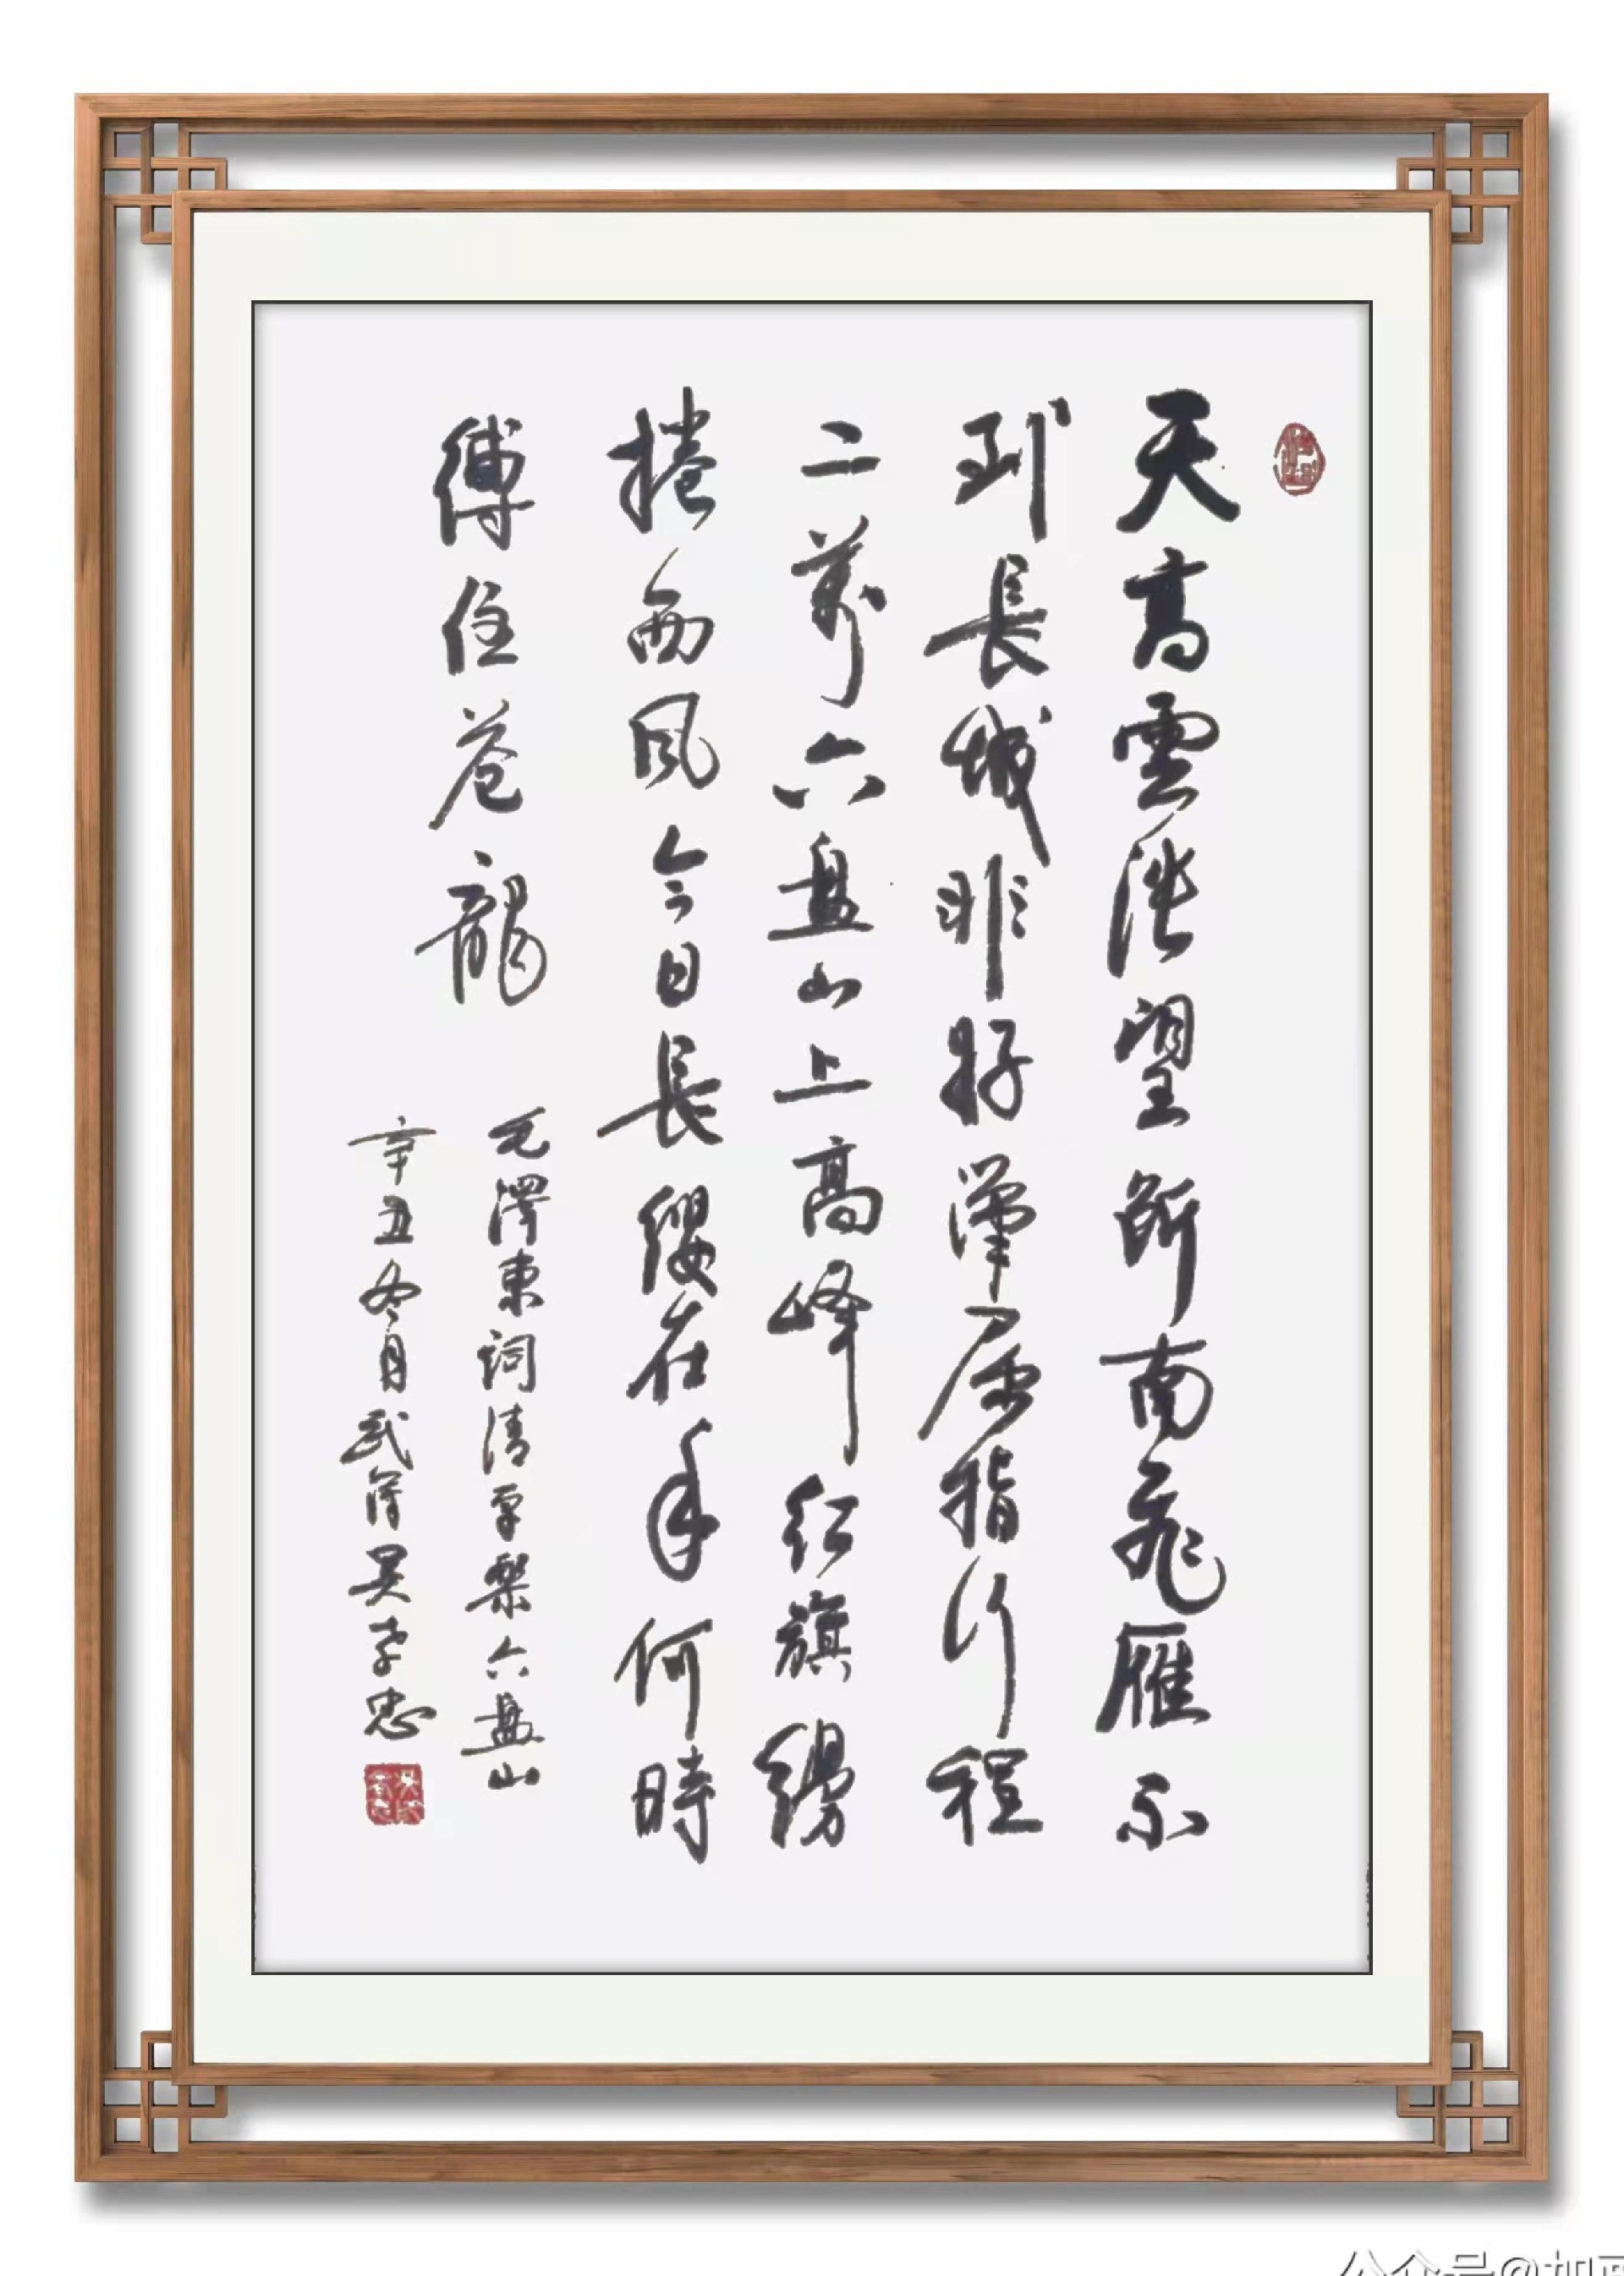 天高雲淡望斷南飛雁不
到長城非好漢屈指行程
二萬六盤山上高峰紅旗縵
捲西風今日長纓在手何時
縛住蒼龍
毛澤東詞清平樂六盤山
辛丑冬月武落吴孝忠
公众号@加西